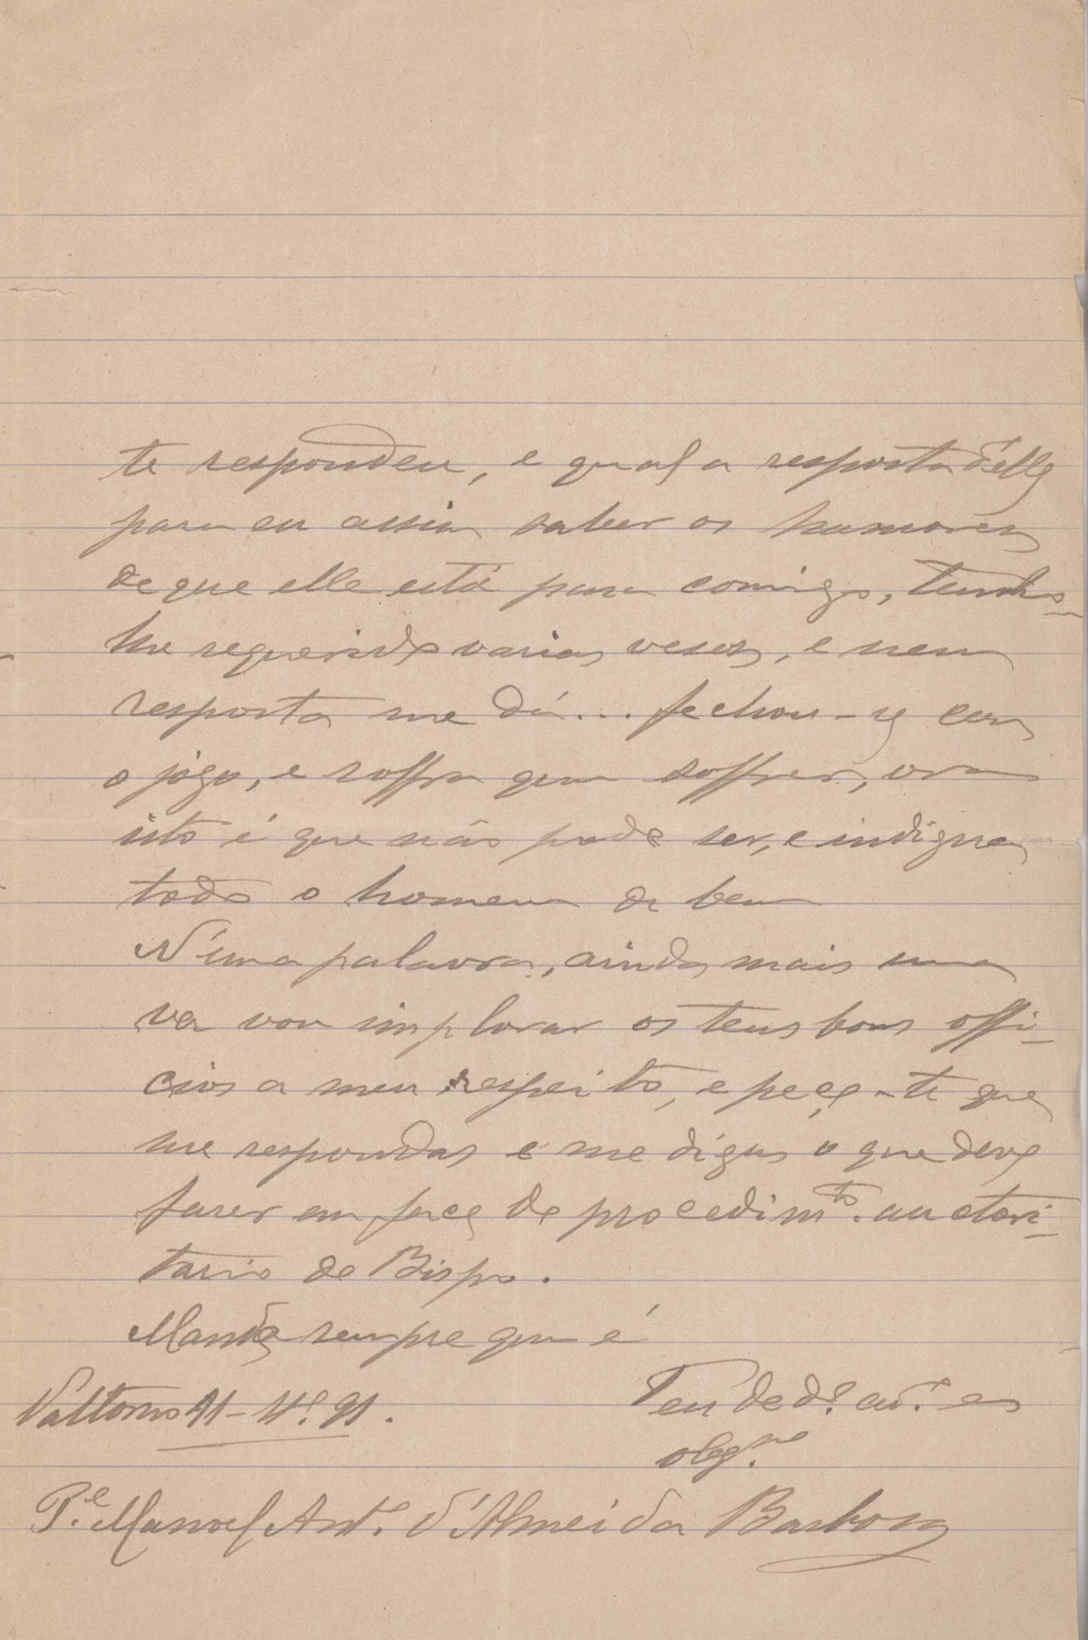 te respondeu, e qual a resposta d'elle
para eu assim saber os humores
de que elle está para comigo, tenho-
lhe requerido varias veses, e nem
resposta me dá... fechou-se com
o jogo, e soffra quem soffrer, ora
isto é que não pode ser, e indigna
todo o homem de bem
N'uma palavra, ainda mais uma
vez vou implorar os teus bons offi-
cios a meu respeito, e peço-te que
me respondas e me digas o que devo
fazer em face do procedim.to auctori-
tario do Bispo.
Manda sempre quem é
Teu ded.o
obg.mo
P.e Manoel Ant.o d'Almeida Barbosa